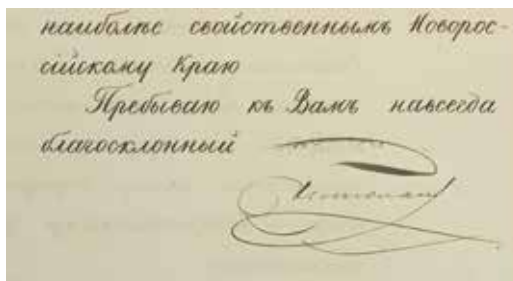 наиболѣе свойственнымъ Новорос-
сійскому Краю
Пребываю къ Вамъ навсегда
благосклонный